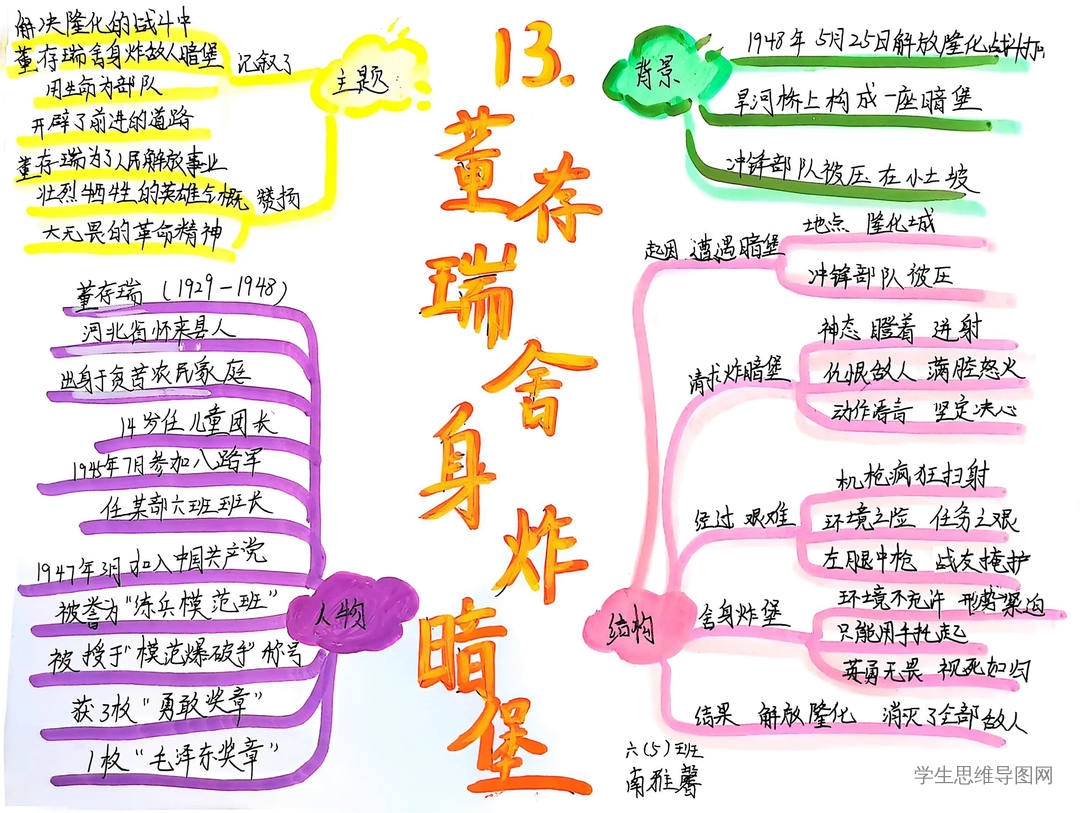 13.
董存瑞舍身炸暗堡
主题
记叙了
解决隆化的战斗中
董存瑞舍身炸敌人暗堡
用生命为部队
开辟了前进的道路
赞扬
董存瑞为了人民解放事业
壮烈牺牲的英雄气概
大无畏的革命精神
背景
1948年5月25日解放隆化战斗打
旱河桥上构成一座暗堡
冲锋部队被压在小土坡
人物
董存瑞(1929-1948)
河北省怀来县人
出身于贫苦农民家庭
14岁任儿童团长
1945年7月参加八路军
任某部六班班长
1947年3月加入中国共产党
被誉为“练兵模范班”
被授于“模范爆破手”称号
获3枚“勇敢奖章”
1枚“毛泽东奖章”
结构
起因 遭遇暗堡
地点 隆化城
冲锋部队被压
请求炸暗堡
神态 瞪着 迸射
仇恨敌人 满腔怒火
动作语言 坚定决心
经过 艰难
机枪疯狂扫射
环境之险 任务之艰
左腿中枪 战友掩护
舍身炸堡
环境不允许 形势紧迫
只能用手托起
英勇无畏 视死如归
结果 解放隆化 消灭了全部敌人
六(5)班
南雅馨
学生思维导图网